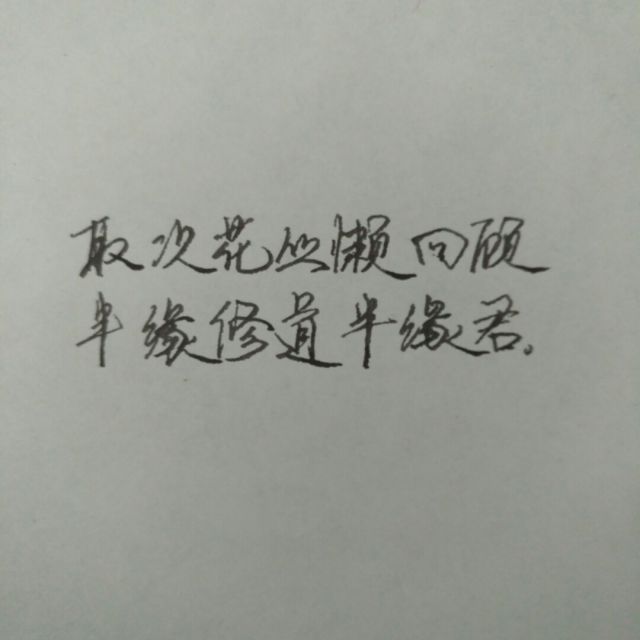 取次花丛懒回顾
半缘修道半缘君。